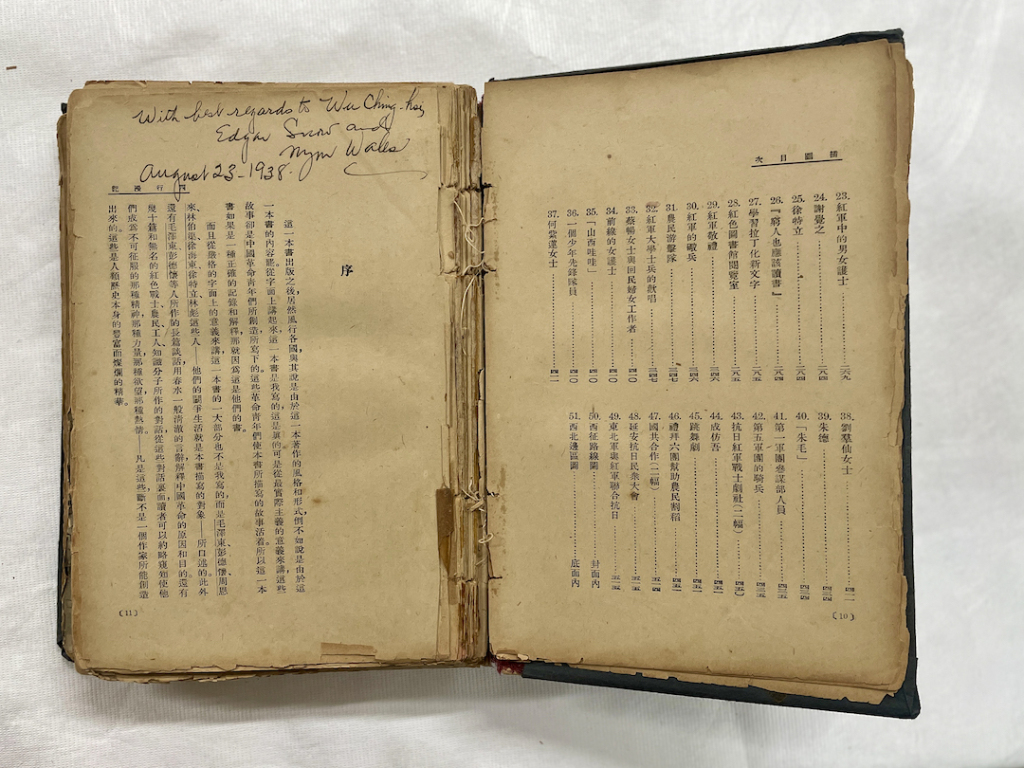 插圖目次
23. 紅軍中的男女護士……二六九
24. 謝覺之……二八四
25. 徐特立……二八四
26. 『窮人也應該讀書』……二八四
27. 學習拉丁化新文字……二八五
28. 紅色圖書館閱覽室……二八五
29. 紅軍敬禮……三四六
30. 紅軍的礮兵……三四六
31. 農民游擊隊……三四七
32. 紅軍大學士兵的獻唱……三四七
33. 蔡暢女士與回民婦女工作者……四一〇
34. 前線的女護士……四一〇
35. 「山西哇哇」……四一〇
36. 一個少年先鋒隊員……四一〇
37. 何芸女士……四一一
38. 劉羣仙女士……四一一
39. 朱德……四三四
40. 「朱毛」……四三四
41. 第一軍團參謀部人員……四三四
42. 第五軍團的騎兵……四三五
43. 抗日紅軍戰士劇社(二幅)……四五〇
44. 成仿吾……四五一
45. 跳舞劇……四五一
46. 禮拜六團幫助農民割稻……四五一
47. 國共合作(二幅)……五一四
48. 延安抗日民衆大會……五一五
49. 東北軍與紅軍聯合抗日……五一五
50. 西征路線圖……封面內
51. 西北邊區圖……底面內
〔10〕
With best regards to Wu Ching-hsi
Edgar Snow and
Nym Wales
August 23-1938.
序
這一本書出版之後,居然風行各國,與其說是由於這一本著作的風格和形式,倒不如說是由於這
一本書的內容罷。從字面上講起來,這一本書是我寫的,這是真的。可是從最實際主義的意義來講,這些
故事卻是中國革命青年們所創造,所寫下的。這些革命青年們使本書所描寫的故事活着。所以這一本
書如果是一種正確的記錄和解釋,那就因為這是他們的書。
而且從嚴格的字面上的意義來講,這一本書的一大部分也不是我寫的,而是毛澤東,彭德懷,周恩
來,林伯渠,徐海東,徐特立,林彪這些人——他們的鬬爭生活就是本書描寫的對象——所口述的。此外
還有毛澤東彭德懷等人所作的長篇談話,用春水一般清澈的言辭,解釋中國革命的原因和目的。還有
幾十篇和無名的紅色戰士,農民,工人,知識分子所作的對話,從這些對話裏面,讀者可以約略窺知使他
們成為不可征服的那種精神,那種力量,那種欲望,那種熱情。——凡是這些,斷不是一個作家所能創造
出來的。這些是人類歷史本身的豐富而燦爛的精華。
〔11〕